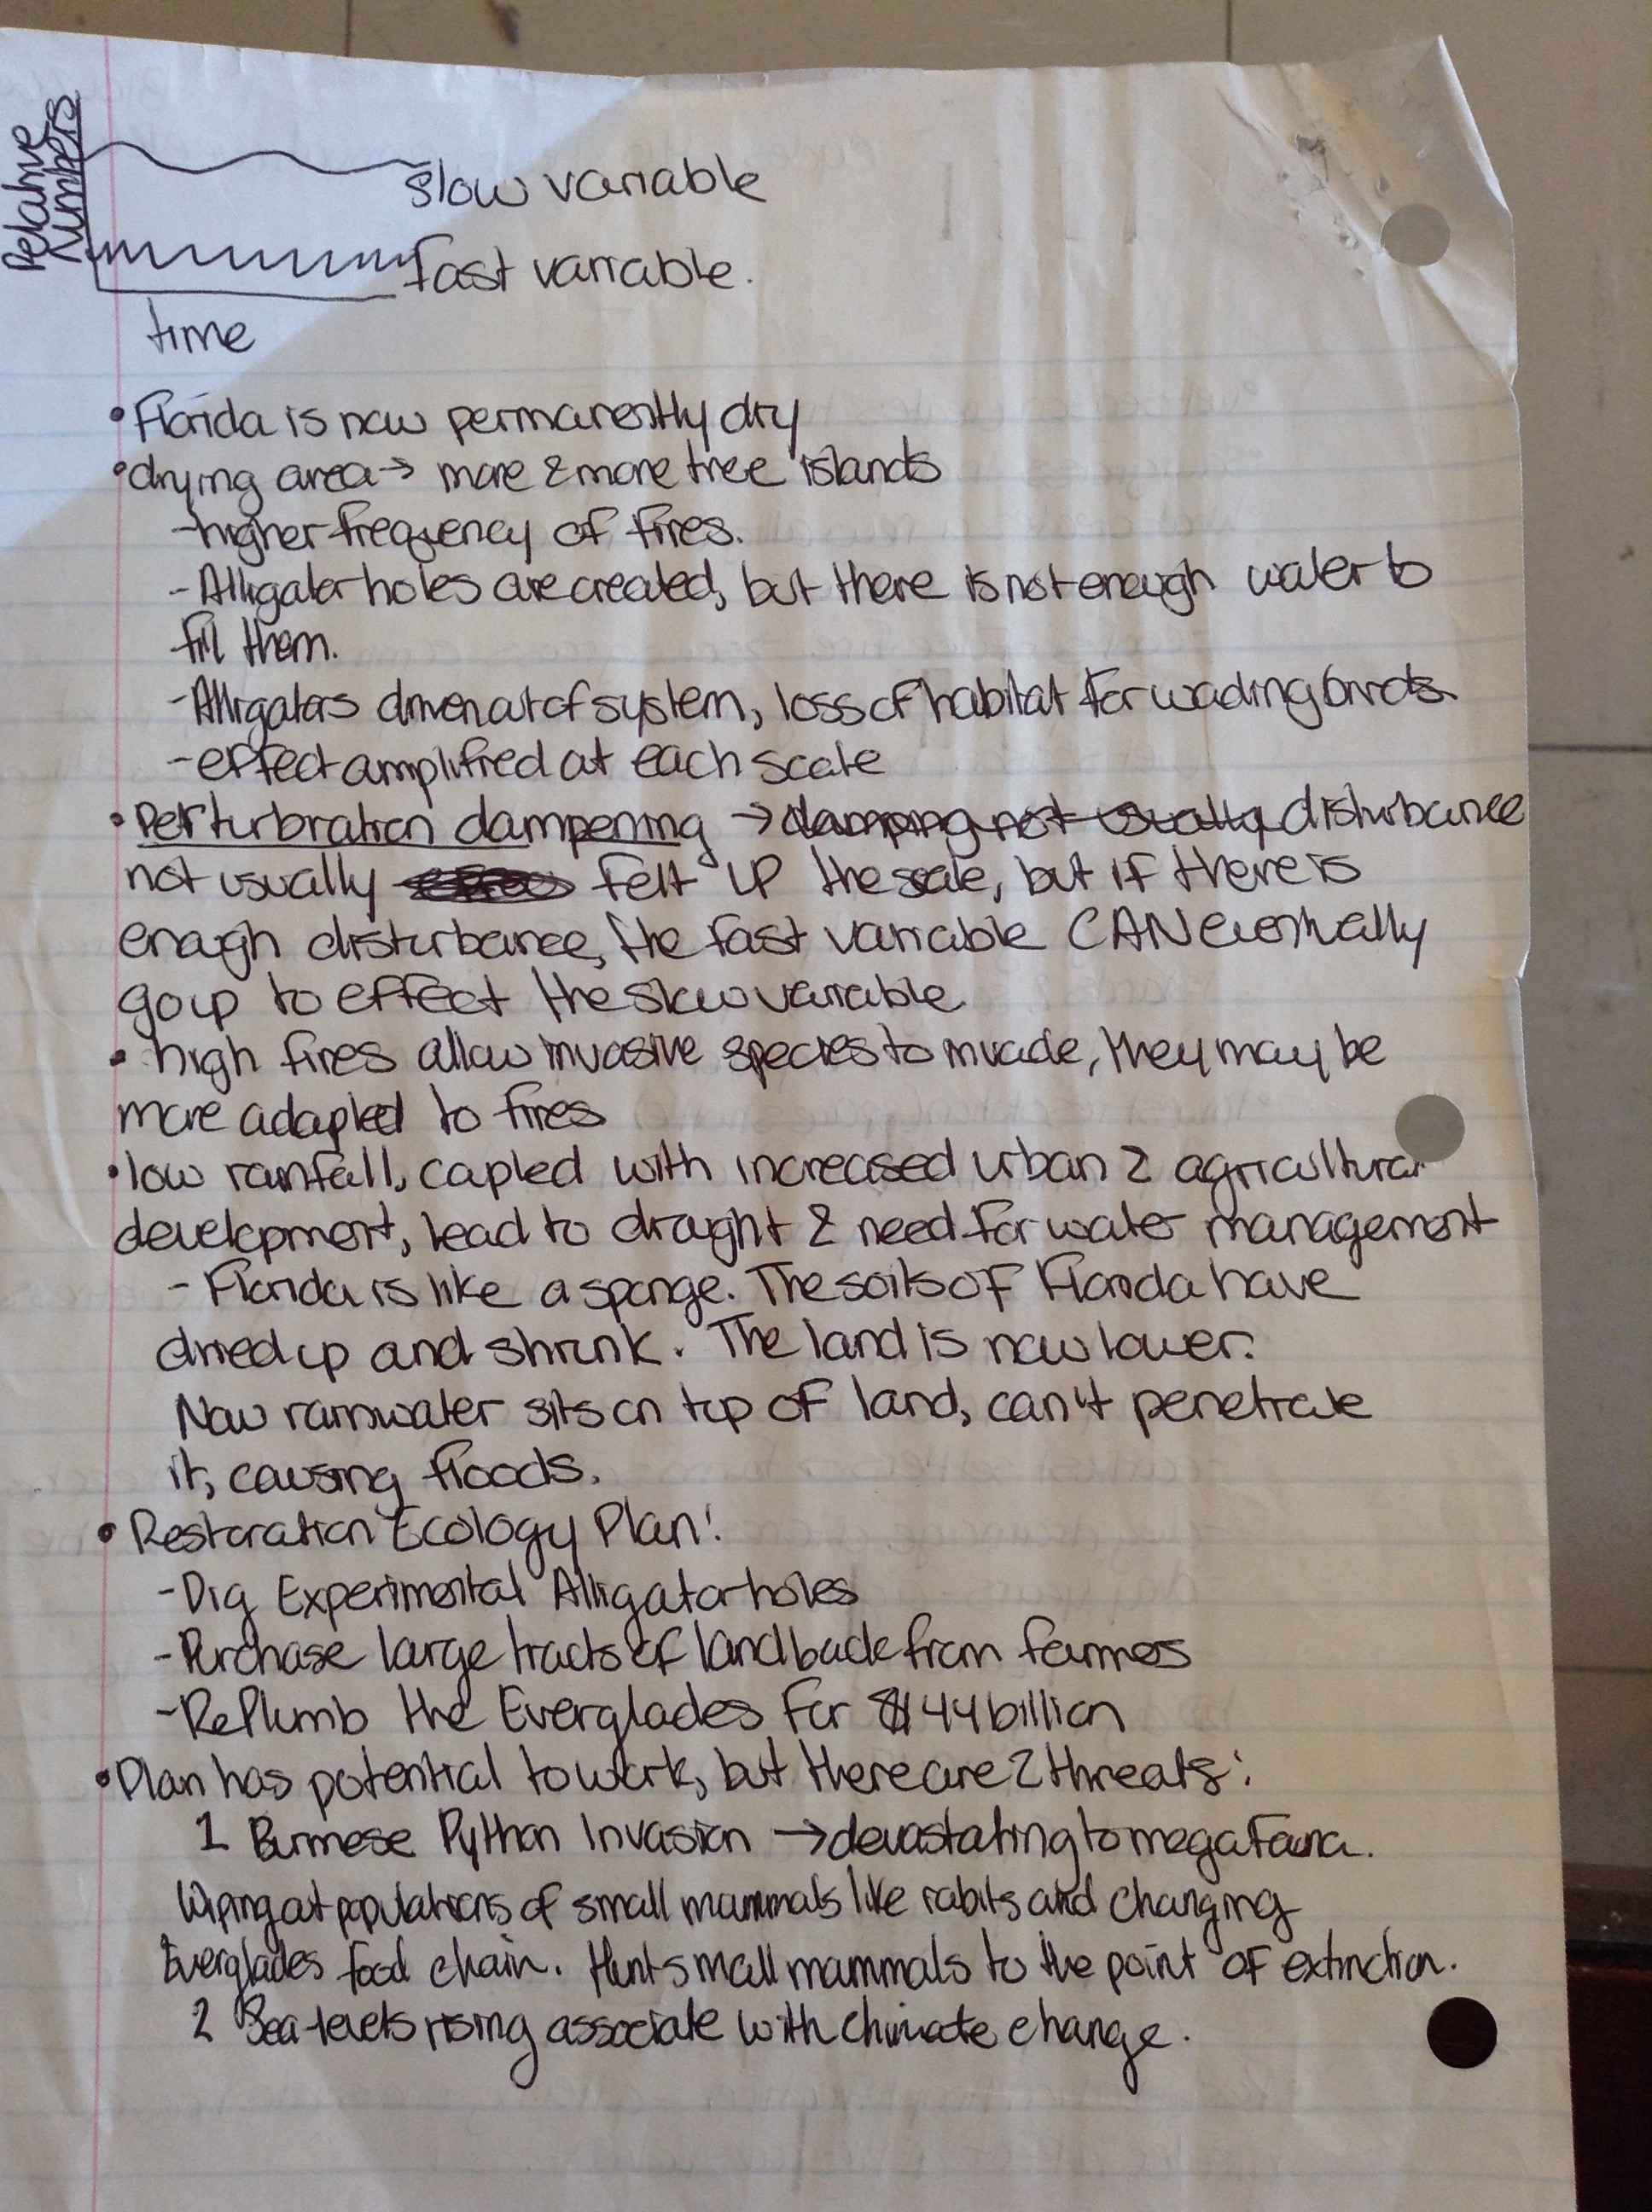 Relative
Numbers
slow variable
fast variable.
time
• Florida is now permanently dry
• drying area → more & more tree islands
- higher frequency of fires.
- Alligator holes are created, but there is not enough water to
fill them.
- Alligators driven out of system, loss of habitat for wading birds.
- effect amplified at each scale
• Perturbration dampening → damping not usually disturbance
not usually felt up the scale, but if there is
enough disturbance, the fast variable CAN eventually
go up to effect the slow variable.
• high fires allow invasive species to invade, they may be
more adapted to fires
• low rainfall, coupled with increased urban & agricultural
development, lead to drought & need for water management
- Florida is like a sponge. The soils of Florida have
dried up and shrunk. The land is now lower.
Now rainwater sits on top of land, can't penetrate
it, causing floods.
• Restoration Ecology Plan:
- Dig Experimental Alligator holes
- Purchase large tracts of land back from farmers
- RePlumb the Everglades for $144 billion
• Plan has potential to work, but there are 2 threats:
1 Burmese Python Invasion → devastating to megafauna.
Wiping out populations of small mammals like rabits and changing
Everglades food chain. Hunt small mammals to the point of extinction.
2 Sea-levels rising associate with climate change.